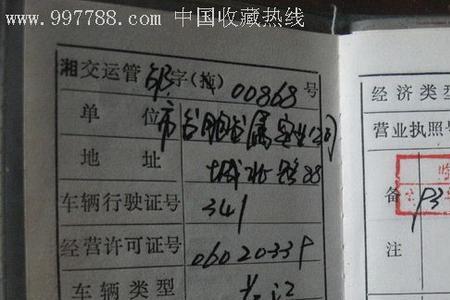 www.997788.com 中国收藏热线
湘交运管邵字(摊)00868号
单位 市台胞台属实业公司
地址 城北路88
车辆行驶证号 341
经营许可证号 0602033
车辆类型 长江
经济类型
营业执照号
备
注